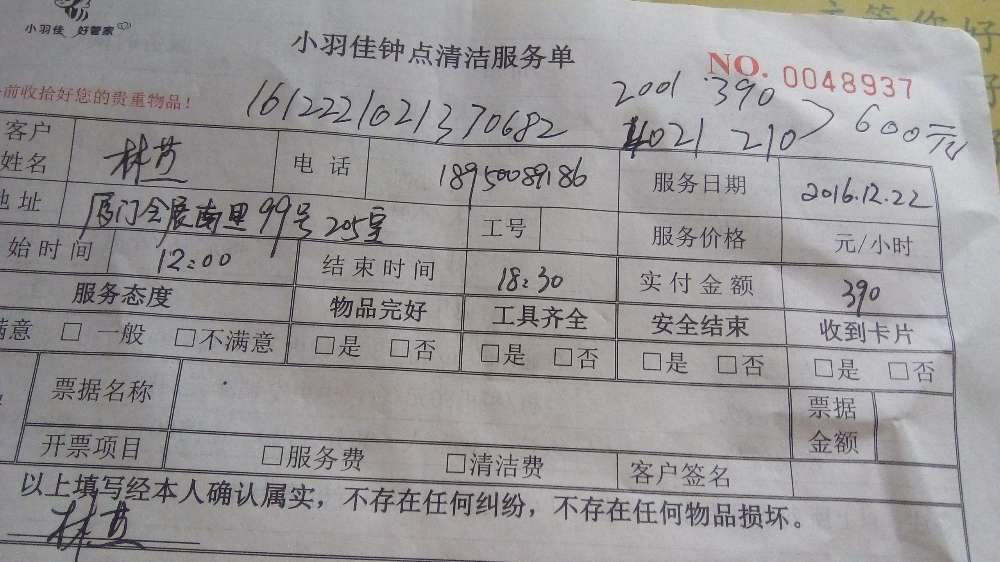 小羽佳 好管家
小羽佳钟点清洁服务单
NO. 0048937
前收拾好您的贵重物品!
1612221021370682
2001 390
4021 210
600元
客户姓名 林 电话 18950089186 服务日期 2016.12.22
地址 厦门会展南里99号205室 工号 服务价格 元/小时
始时间 12:00 结束时间 18:30 实付金额 390
服务态度 物品完好 工具齐全 安全结束 收到卡片
满意 □ 一般 □不满意 □是 □否 □是 □否 □是 □否 □是 □否
票据名称 票据金额
开票项目 □服务费 □清洁费 客户签名
以上填写经本人确认属实,不存在任何纠纷,不存在任何物品损坏。
林